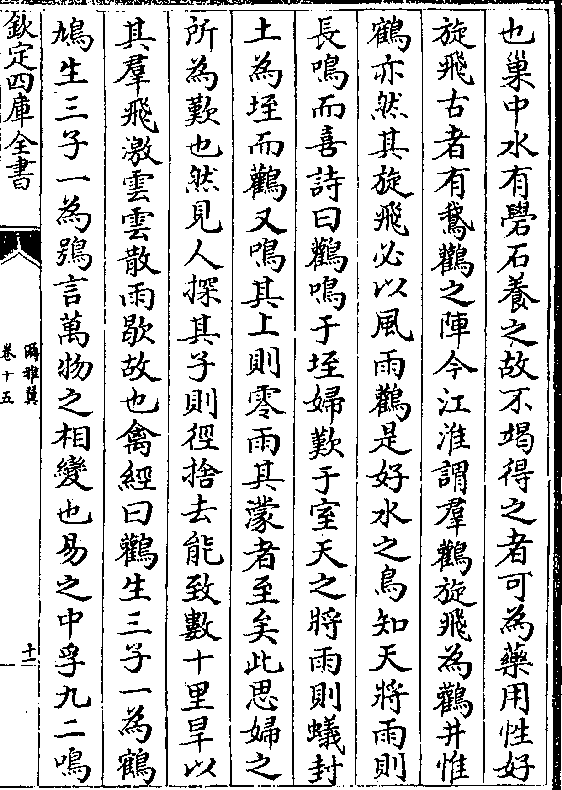 也巢中水有礐石養之故不竭得之者可為藥用性好
旋飛古者有鵞鸛之陣今江淮謂羣鸛旋飛為鸛井惟
鶴亦然其旋飛必以風雨鸛是好水之鳥知天將雨則
長鳴而喜詩曰鸛鳴于垤婦歎于室天之將雨則蟻封
土為垤而鸛又鳴其上則零雨其濛者至矣此思婦之
所為歎也然見人探其子則徑捨去能致數十里旱以
其羣飛激雲雲散雨歇故也禽經曰鸛生三子一為鶴
鳩生三子一為鴞言萬物之相變也易之中孚九二鳴
欽定四庫全書
爾雅翼
卷十五
十一